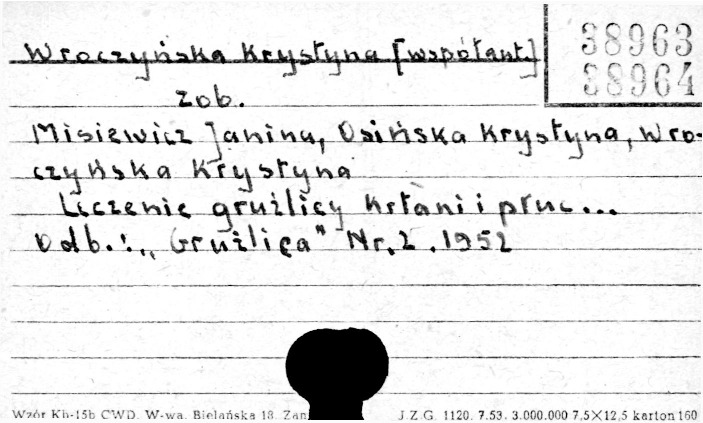 Wroczyńska Krystyna [współaut.]
38963
38964
zob.
Misiewicz Janina, Osińska Krystyna, Wro-
czyńska Krystyna
Leczenie gruźlicy krtani i płuc...
Odb.: „Gruźlica" Nr. 2. 1952
Wzór Kb-15b CWD. W-wa, Bielańska 18. Zam
J.Z.G. 1120. 7.53. 3.000.000 7,5×12,5 karton 160